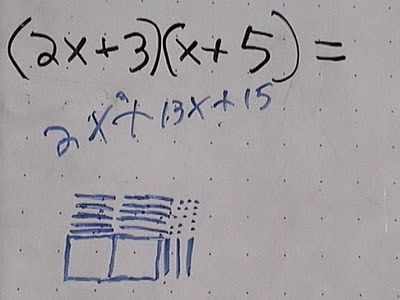 (2x+3)(x+5) =
2x²+13x+15